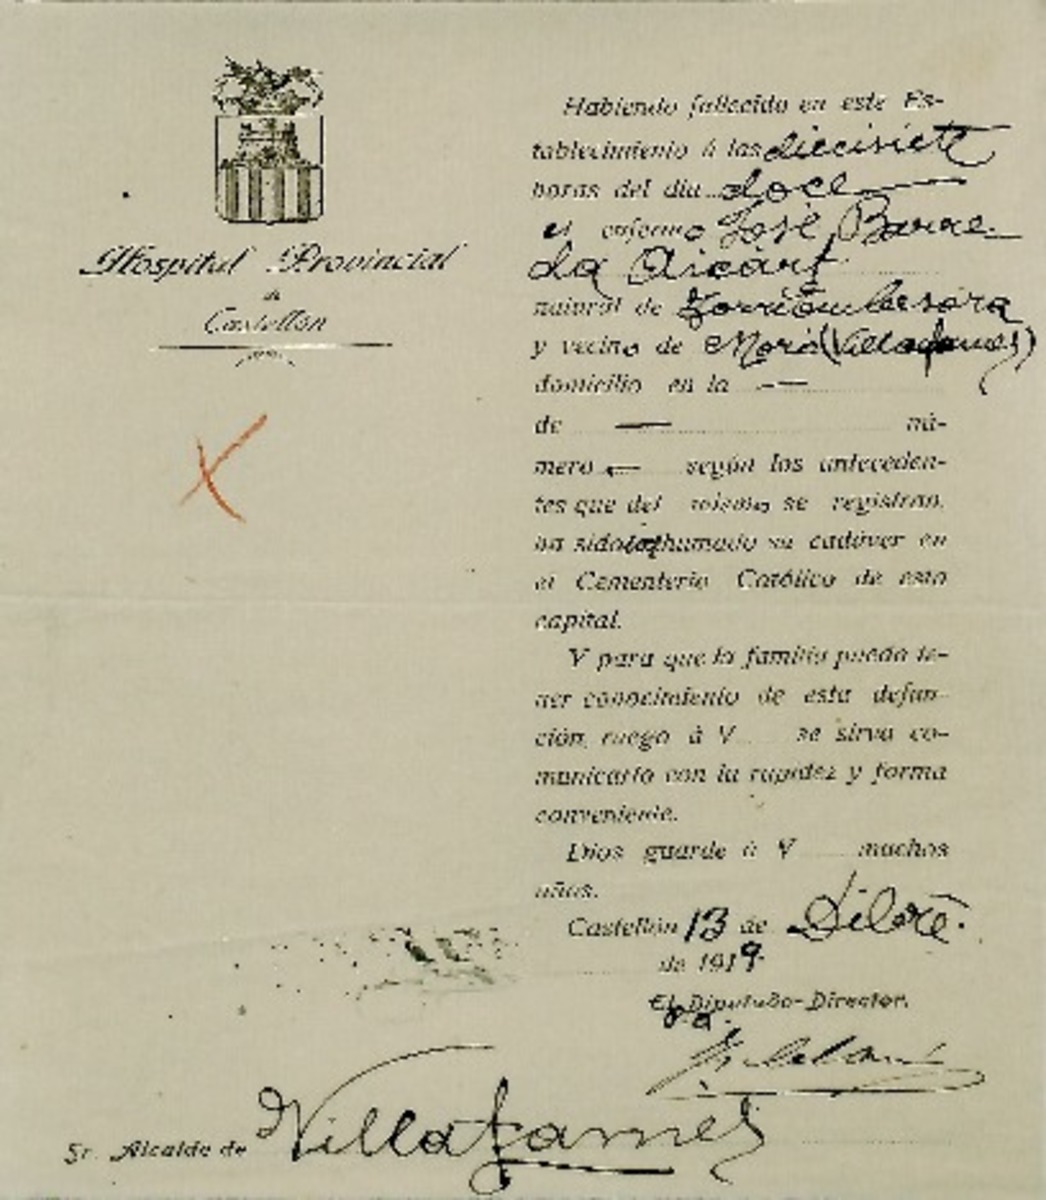 Hospital Provincial
de
Castellón
Habiendo fallecido en este Es-
tablecimiento á las diecisiete
horas del día doce
el enfermo José Barre
da Aicart
natural de Torrembesora
y vecino de Moró (Villafamés)
domicilio en la —
de — nú-
mero — según los anteceden-
tes que del mismo se registran,
ha sido inhumado su cadáver en
el Cementerio Católico de esta
capital.
Y para que la familia pueda te-
ner conocimiento de esta defun-
ción, ruego á V se sirva co-
municarlo con la rapidez y forma
conveniente.
Dios guarde á V muchos
años.
Castellón 13 de Dibre.
de 1919.
El Diputado-Director.
Sr. Alcalde de Villafamés